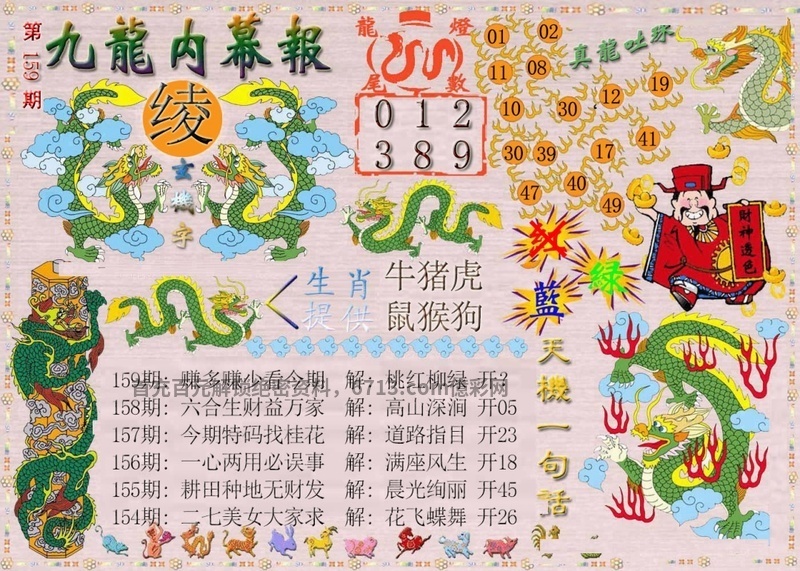 第159期
九龍内幕報
綾
玄機字
龍燈
尾數
0 1 2
3 8 9
真龍吐珠
01 02
11 08
10 30 12 19
30 39 17 41
47 40 49
红 綠
藍
財神透色
生肖 牛猪虎
提供 鼠猴狗
天機一句話
159期: 赚多赚少看今期 解: 桃红柳绿 开?
首充百元解锁绝密资料，6713.com穩彩网
158期: 六合生财益万家 解: 高山深涧 开05
157期: 今期特码找桂花 解: 道路指目 开23
156期: 一心两用必误事 解: 满座风生 开18
155期: 耕田种地无财发 解: 晨光绚丽 开45
154期: 二七美女大家求 解: 花飞蝶舞 开26